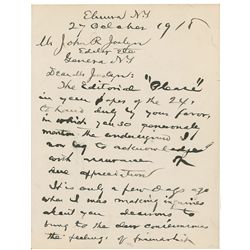 Elmira N.Y.
27 October 1918
Mr John R Joslyn
Editor Etc
Geneva N.Y.
Dear Mr Joslyn:
The Editorial "Please"
in your paper of the 24,
to hand due by your favor,
in which you so generously
mention the undersigned I
to acknowledge
with
appreciation
It is only a few days ago
when I was making inquiries
about your decisions to
bring to the
the feelings of friendship